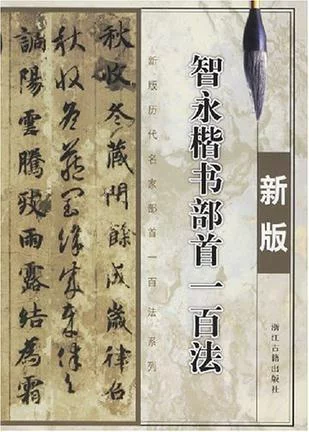 新版
浙江古籍出版社
智永楷书部首一百法
新版历代名家部首一百法系列
秋收冬藏閏餘成歲律召
秋收冬藏閏餘成歲律召
調陽雲騰致雨露結為霜